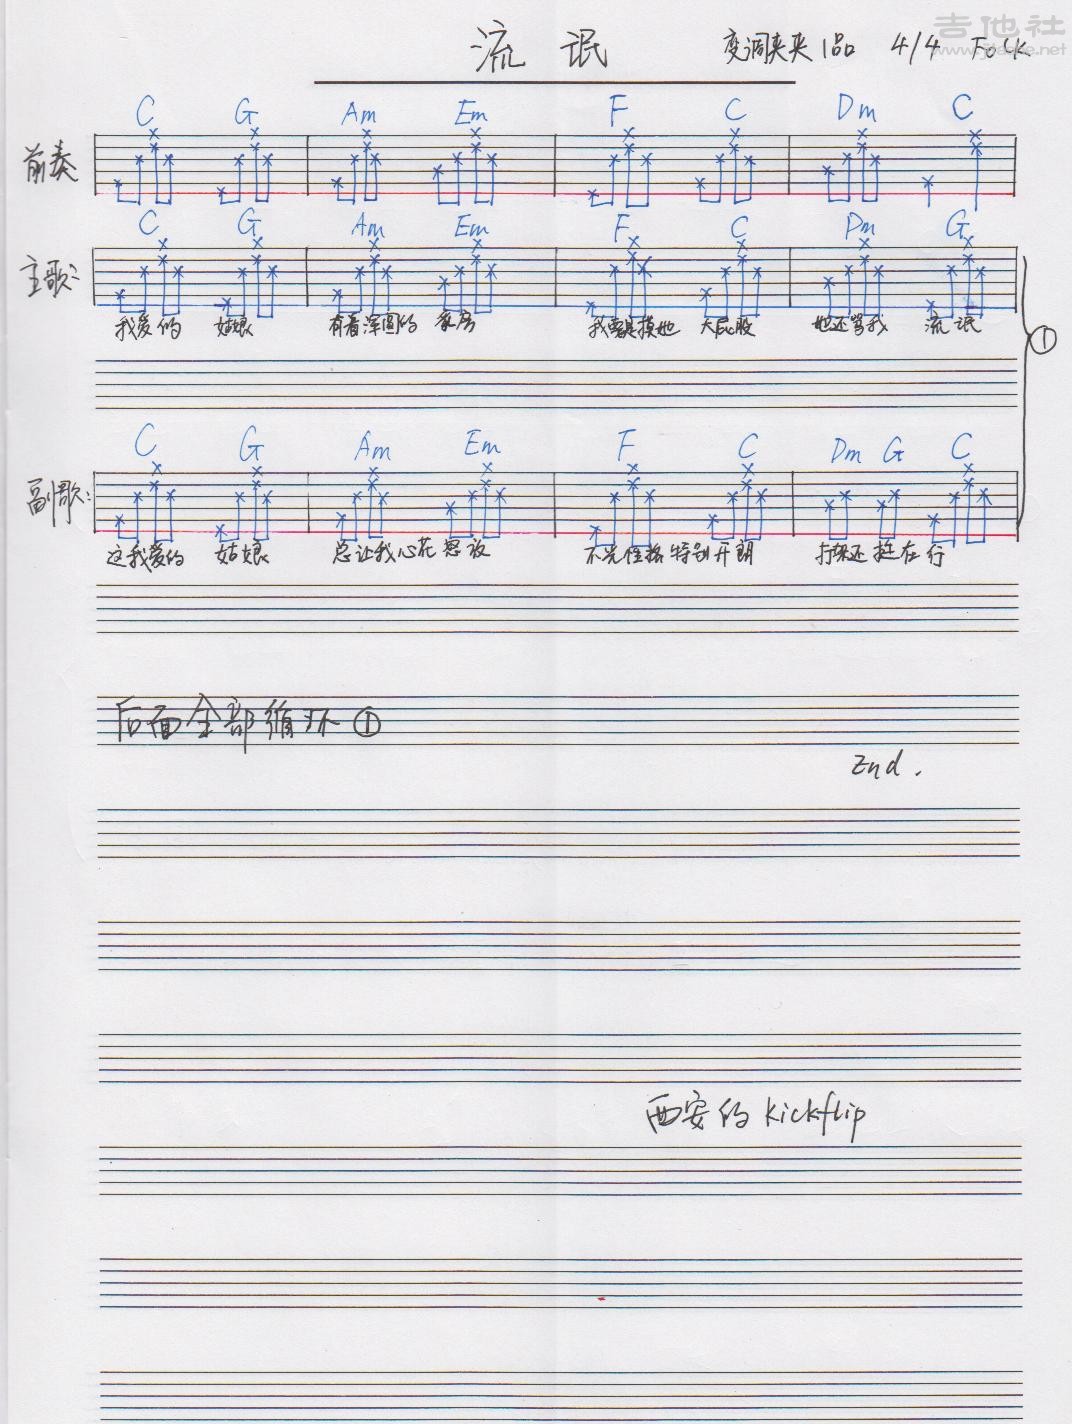 流氓 变调夹夹1品 4/4 Folk
吉他社
www.jitashe.net
C G Am Em F C Dm C
前奏
C G Am Em F C Dm G
主歌:
我爱的 姑娘 有着浑圆的 乳房 我要是摸她 大屁股 她还骂我 流氓
①
C G Am Em F C Dm G C
副歌:
这我爱的 姑娘 总让我心花怒放 不光性格特别开朗 打架还挺在行
后面全部循环①
End.
西安的kickflip